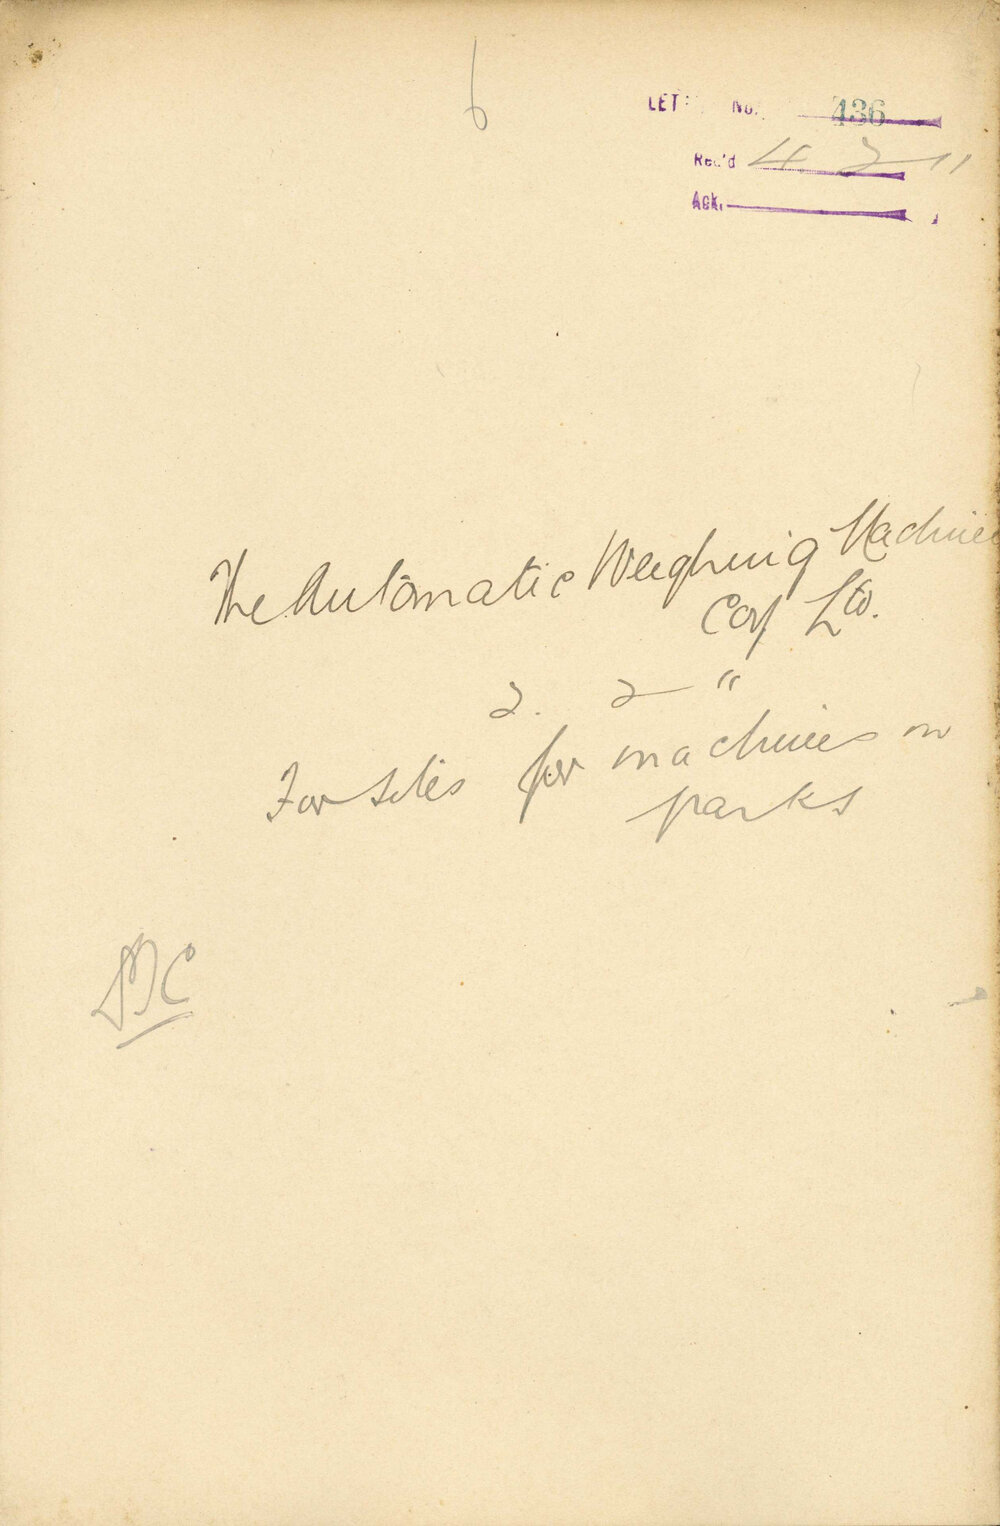 6
LET No. 436
Rec'd 4 2 11
Ack.
The Automatic Weighing Machine
Coy Ltd.
2. 2 11
For sites for machines on
parks